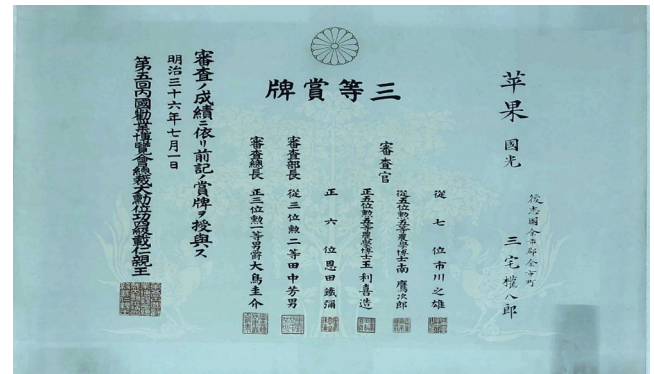 苹果 國光
後志國余市郡余市町
三宅權八郎
三等賞牌
審査官
從七位市川之雄
從五位勲五等農學博士南鷹次郎
正五位勲五等農學博士玉利喜造
正六位恩田鐵彌
審査部長 從三位勲二等田中芳男
審査總長 正三位勲一等男爵大鳥圭介
審査ノ成績ニ依リ前記ノ賞牌ヲ授與ス
明治三十六年七月一日
第五回內國勸業博覽會總裁大勲位功四級載仁親王